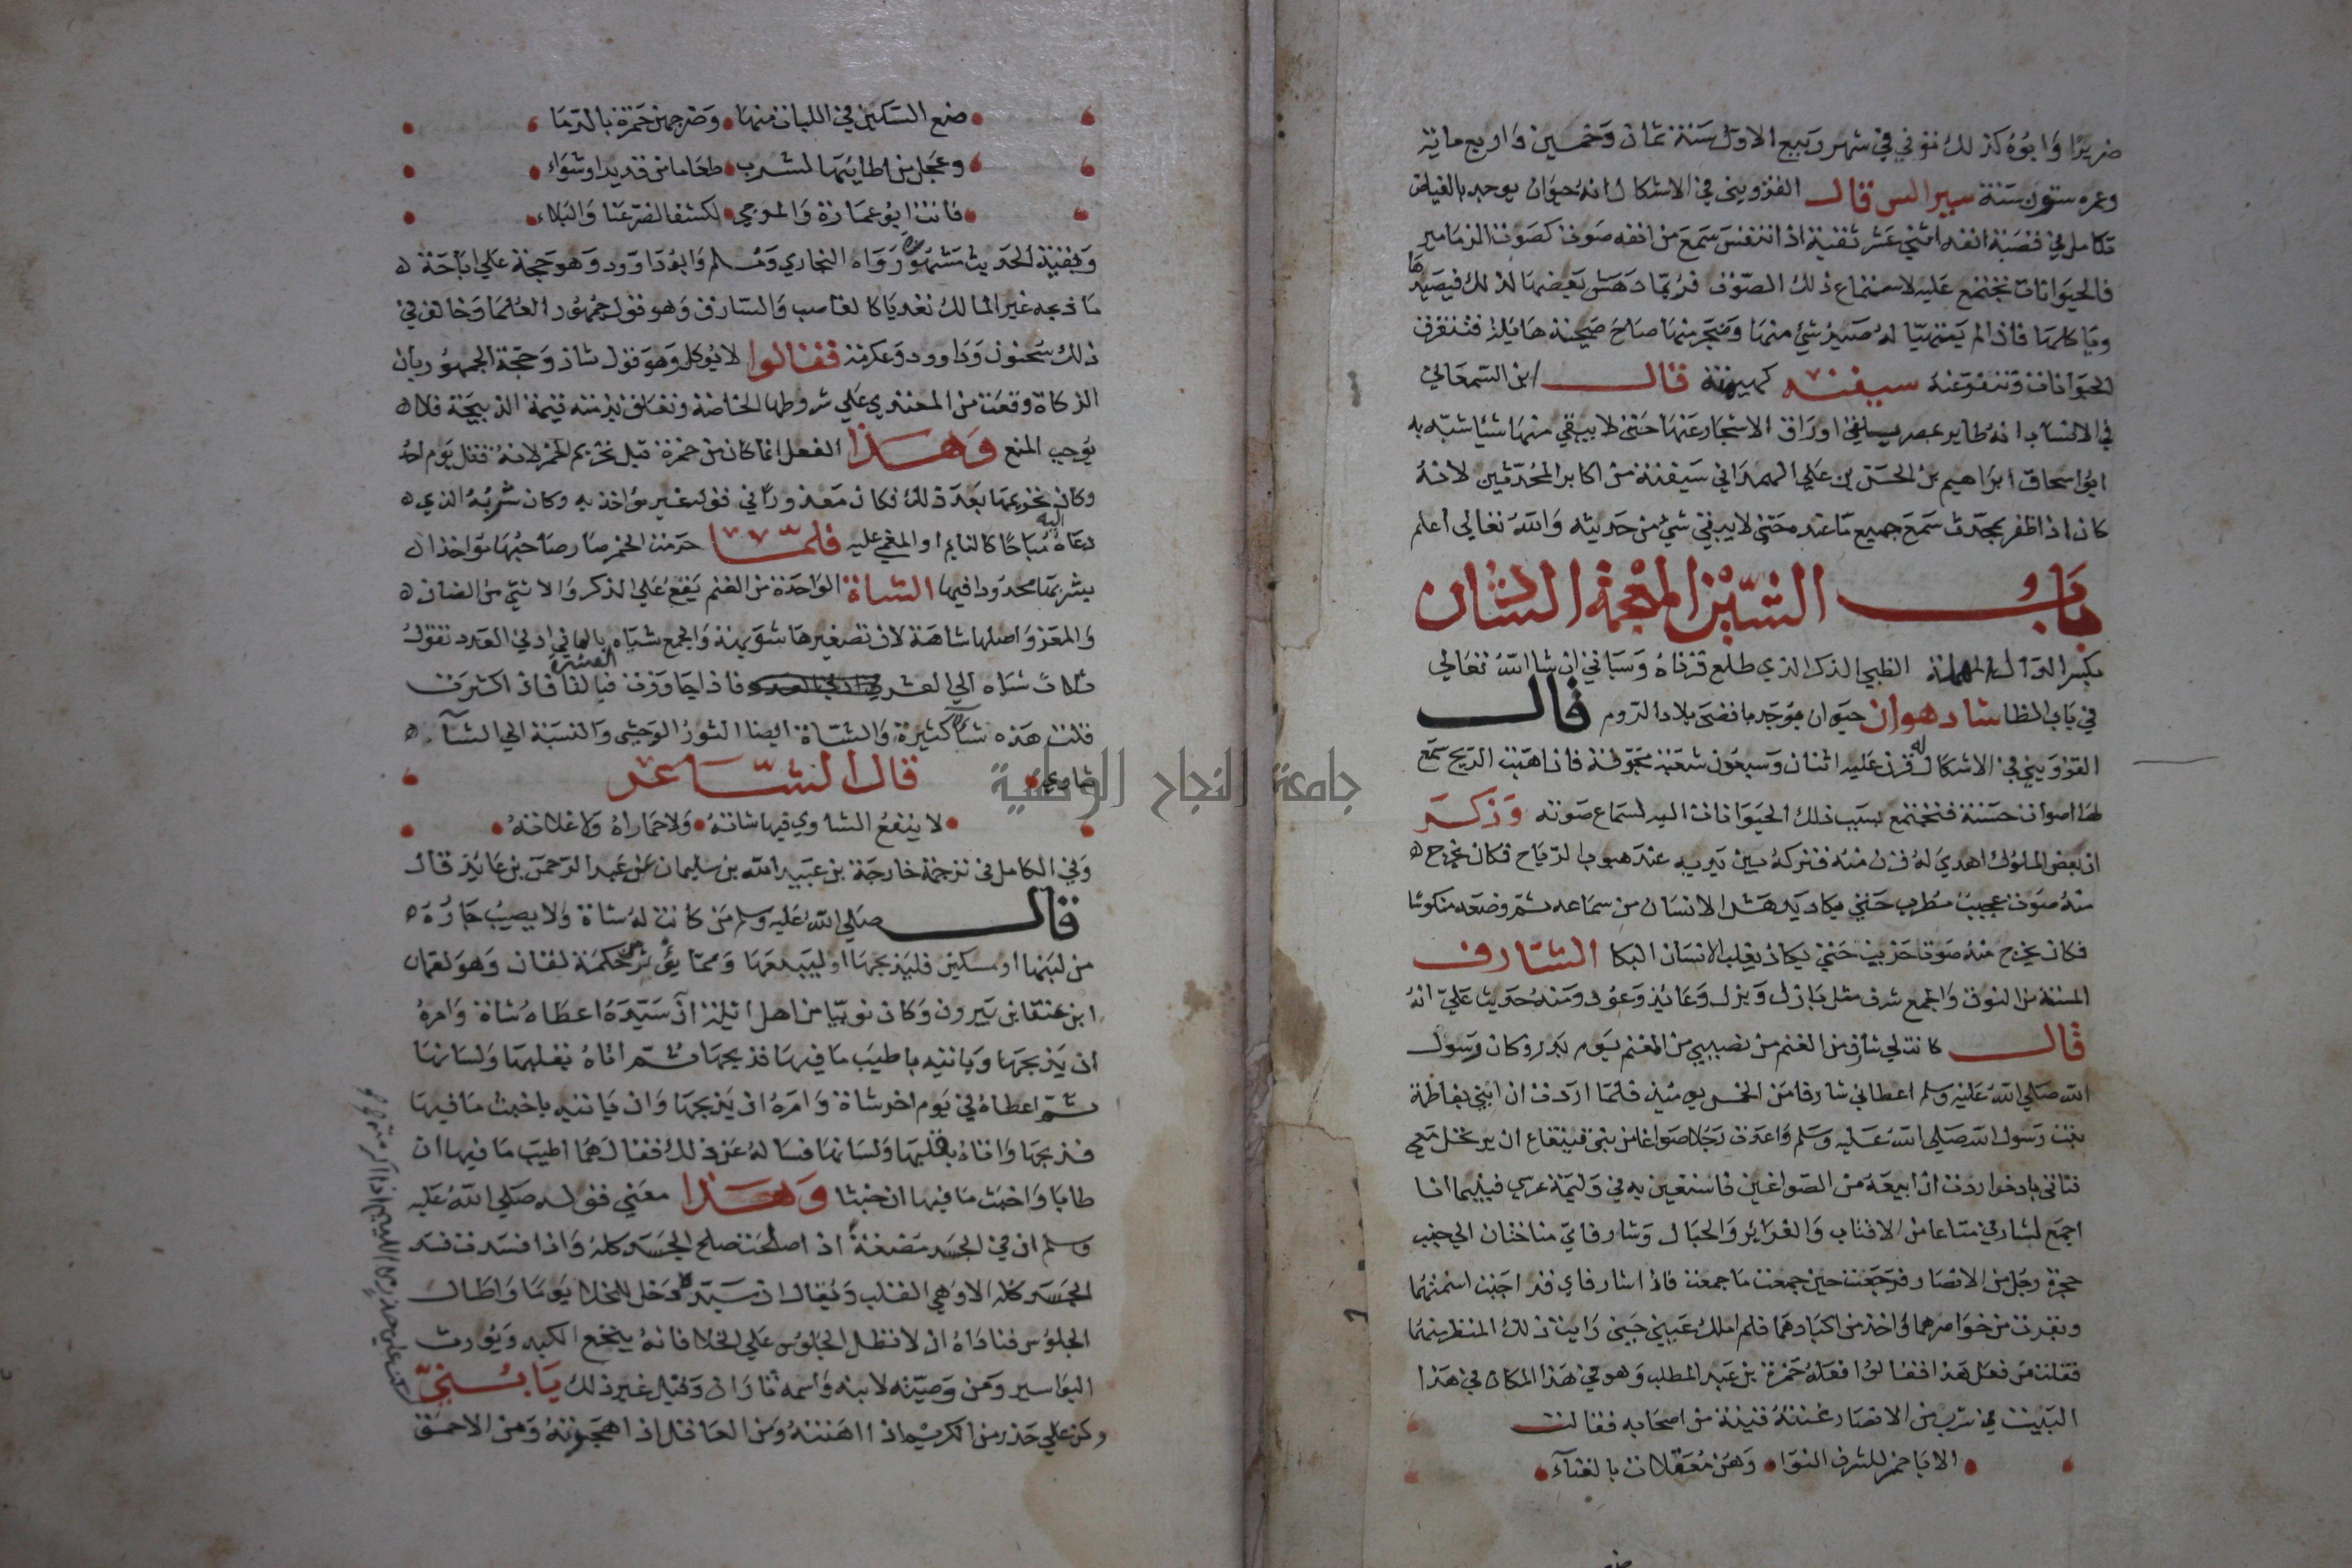 ضريرًا وَابوُهُ كذلك توفي في شهر ربيع الاول سَنة ثمان وَخمسين وَاربع ماية
وعمره ستون سَنة سيرانس قال القزويني في الاشكال انهُ حيوَان يوجد بالغياض
بكابل في قصبَة انفه اثني عَشر ثقبة اذا تنفسَ سمعَ من انفه صوت كصَوت المزامير
فالحيَوانات تجتمع عَليه لاستماع ذلك الصوت فربما دهش بَعضهَا لذلك فيصيدهَا
وياكلهَا فاذا لم يتهيّا لهُ صَيد شئ منهَا وَضجر منهَا صَاحَ صَيحة هَايلة فتتفرق
الحيَوانات وتنفر عَنهُ سيفنه كهيئة قال ابن السّمعَاني
في الانسَاب انهُ طاير بمصر يلقي اورَاق الاشجار عَنهَا حَتى لا يبقي منهَا شيا شبّه به
ابو اسحاق ابرَاهيم بن الحسَن بن عَلي الهمدَاني سَيفنة من اكابر المحدّثين لانهُ
كان اذا ظفر بمحدث سَمعَ جميع مَا عنده حَتى لا يبقي شئ من حَديثه وَاللهُ تعَالي اعلم
بابُ الشّين المعجمة الشادن
بكسر الدوال المهملة الظبي الذكر الذي طلع قرنَاهُ وَسَياتي ان شا اللهُ تعَالي
في بَاب الظا شادهوان حيوَان يوجَد باقصَى بلاد الرّوم قال
القزويني في الاشكال له قرن عَليه اثنان وَسَبعون شعبَة مجَوّفة فاذا هبّت الريح سمع
لهَا اصوات حَسَنة فتجتمع بسَبب ذلك الحيَوَانات اليه لسَماع صَوته وَذكرَ
ان بعض الملوك اهدي لهُ قرن منهُ فتركهُ بين يديه عند هبوب الريَاح فكان يخرج
منهُ صَوت عَجيب مُطرب حَتي يكاد يَدهَش الانسَان من سمَاعه ثمّ وضعَه منكوسًا
فكان يخرج منهُ صَوت حَزين حَتى يكاد يغلب الانسَان البكا الشارف
المسنة من النوق وَالجمع شرف مثل بَازل وَبزل وَعَايذ وَعُوذ ومنهُ حَديث عَليّ انهُ
قال كانت لي شارف من الغنم من نصيبي من المغنم يوم بدر وكان رسول
الله صَلي اللهُ عَليه وسلم اعطاني شارفا من الخمس يومئذ فلمّا اردت ان ابتني بفاطمة
بنت رسول الله صَلي اللهُ عَليه وَسَلم وَاعدت رَجُلا صَواغا من بني قينقاع ان يرتحل معي
فناتي باذخر اردت ان ابيعَهُ من الصّواغين فاستعين به في وَليمَة عرسي فبينما انا
اجمَع لشارفي متاعا من الاقتاب وَالغرَاير وَالحبَال وَشارفاي مناختان الي جنب
حجرة رجُل من الانصَار فرَجَعت حين جمعت مَا جمعت فاذا شارفاي قد اجبت اسنمتهمَا
وبقرت من خوَاصرهما وَاخذ من اكبادهما فلم املك عَيني حين رَايت ذلك المنظر منهمَا
فقلت من فعَل هَذا فقالوا فعَلهُ حَمزة بن عَبد المطلب وَهو في هَذا المكان في هَذا
البَيت في شرب من الانصَار غنتهُ قينة من اصحَابه فقالت
الا يا حمز للشرف النوَا وَهنّ مُعَقلات بالفنآء
ضع السّكين في اللبات منهَا وَضرجهن حَمزة بالدّمَا
وعَجّل من اطايبهَا لشرب طعَاما من قديد او شوَاء
فانت ابو عمَارة وَالمرجي لكشف الضرّ عَنا وَالبَلاء
وَبقية الحَديث مَشهُور رَوَاه البخاري وَمسلم وَابو دَاوود وَهو حجة عَلي ابَاحَة
مَا ذبحه غير المالك تعَديَا كالغاصب وَالسّارق وَهو قول جُمهُور العُلمَا وَخالف في
ذلك سَحنون وَدَاوود وَعكرمة فقالوا لا يُوكل وَهو قول شاذ وَحجَّة الجمهُور بان
الذكاة وقعَت من المعتدي عَلي شروطهَا الخاصَة وتعَلق بذمته قيمَة الذبيحَة فلا
يُوجب المنع وَهَذا الفعل انما كان من حَمزة قبل تحريم الخمر لانهُ قتل يَوم احُد
وكان تحريمهَا بَعد ذلك فكان مَعذورًا في قوله غير مؤاخذ به وكان شربُهُ الذي
دعَاهُ اليه مُبَاحًا كالنايم او المغمي عليه فلمّا حرّمت الخمر صَار صَاحبُهَا مؤاخذا ان
يشربهَا محدودا فيهَا الشاة الوَاحَدة من الغنم يَقع عَلي الذكر وَالانثي من الضان
وَالمعَز وَاصلهَا شاهَة لان تصغيرهَا شوَيهة وَالجمع شيَاه بالهَا في ادني العدد تقول
ثلاث شيَاه الي العشر فاذا جاوزت العشرة فبالتا فاذا كثرت
قلت هَذه شاء كثيرة وَالشاة ايضا الثورُ الوَحشى وَالنسبَة الي الشآء
شاوي قال الشّاعر
لا ينفعُ الشاوي فيهَا شاتهُ وَلا حمَاراهُ وَلا علاتهُ
وَفي الكامل في ترجمة خارجَة بن عَبَيد الله بن سليمان عن عَبد الرّحمَن بن عَايذ قال
قال صَلي اللهُ عَليه وسلم من كانت لهُ شاة وَلا يصيبُ جَارُهُ
من لبَنهَا او مسكين فليَذبحهَا او ليبَعهَا وَممّا يؤثر من حكمَة لقمان وَهوَ لقمان
ابن عَنقا بن بَيرون وَكان نوبيّا من اهل ايلة ان سَيّدَهُ اعطَاه شاة وَامرهُ
ان يَذبحهَا وَيَاتيه باطيَب مَا فيهَا فذبحهَا ثمّ اتاهُ بقلبهَا وَلسَانهَا
ثمّ اعطاهُ في يَوم اخر شاة وَامَرهُ ان يَذبحهَا وَان يَاتيه باخبث مَا فيهَا
فذبحهَا وَاتاهُ بقلبهَا وَلسَانهَا فسَالهُ عَن ذلك فقال همَا اطيَب مَا فيهَا ان
طابَا وَاخبَث مَا فيهَا ان خبثا وَهَذا معَني قوله صَلي اللهُ عَليه
وَسلم ان في الجسَد مضغة اذا صلحت صلح الجسَد كلهُ وَاذا فسَدت فسَد
الجسَد كله الا وهي القلب وَيُقال ان سَيّدهُ دَخل الخلا يَومًا وَاطال
الجلوُس فنادَاهُ ان لا تطل الجلوُس عَلي الخلا فانهُ ينخع الكبد وَيُورث
البوَاسير وَمن وَصيّته لابنه وَاسمه ثارَان وَقيل غير ذلك يَا بُنيّ
وكن عَلي حَذر من الكريم اذا اهَنتهُ وَمن العَاقل اذا هجَوتهُ وَمن الاحمَق
جامعة النجاح الوطنية